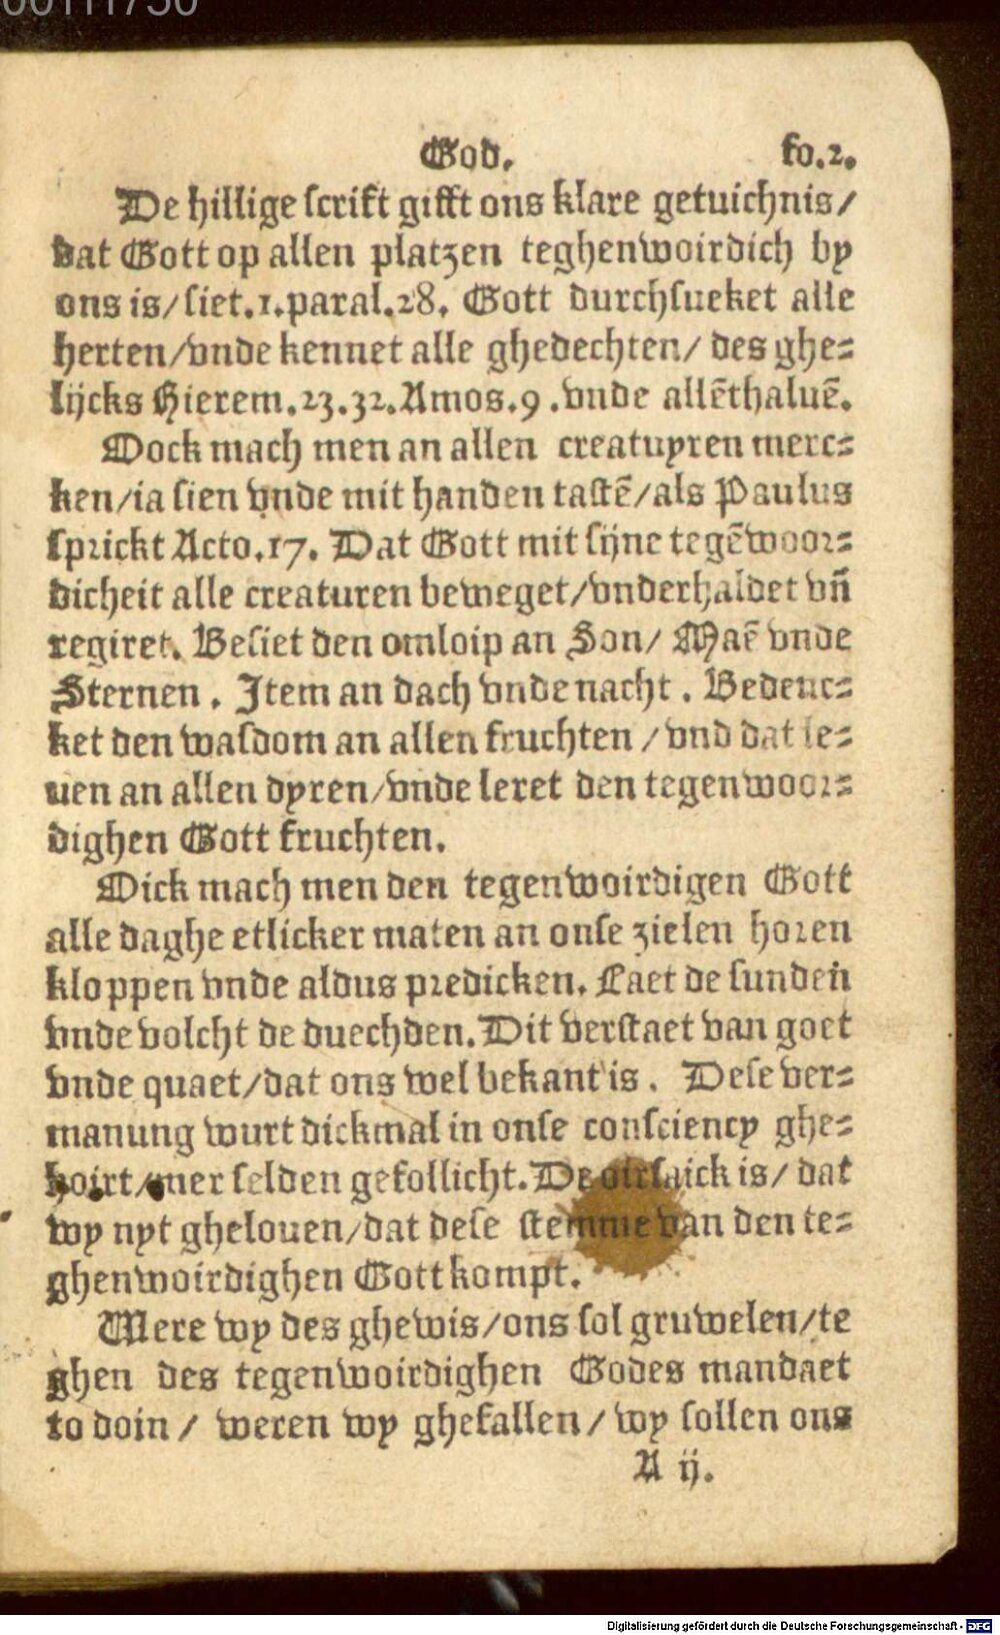 00111730
God. fo.2.
De hillige scrift gifft ons klare getuichnis/
dat Gott op allen platzen teghenwoirdich by
ons is/siet.1.paral.28. Gott durchsueket alle
herten/vnde kennet alle ghedechten/des ghe=
lijcks Hierem.23.32.Amos.9.vnde allēthaluē.
Oock mach men an allen creatuyren merc=
ken/ia sien vnde mit handen tastē/als Paulus
sprickt Acto.17. Dat Gott mit sijne tegēwoor=
dicheit alle creaturen beweget/vnderhaldet vn̄
regiret. Besiet den omloip an Son/ Maē vnde
Sternen. Item an dach vnde nacht. Bedenc=
ket den wasdom an allen fruchten/vnd dat le=
uen an allen dyren/vnde leret den tegenwoor=
dighen Gott fruchten.
Oick mach men den tegenwoirdigen Gott
alle daghe etlicker maten an onse zielen horen
kloppen vnde aldus predicken. Laet de sunden
vnde volcht de duechden. Dit verstaet van goet
vnde quaet/dat ons wel bekant is. Dese ver=
manung wurt dickmal in onse consciency ghe=
hoirt/mer selden gefollicht. De oirsaick is/ dat
wy nyt ghelouen/dat dese stemme van den te=
ghenwoirdighen Gott kompt.
Were wy des ghewis/ons sol gruwelen/te
ghen des tegenwoirdighen Godes mandaet
to doin/ weren wy ghefallen/wy sollen ons
A ij.
Digitalisierung gefördert durch die Deutsche Forschungsgemeinschaft - DFG